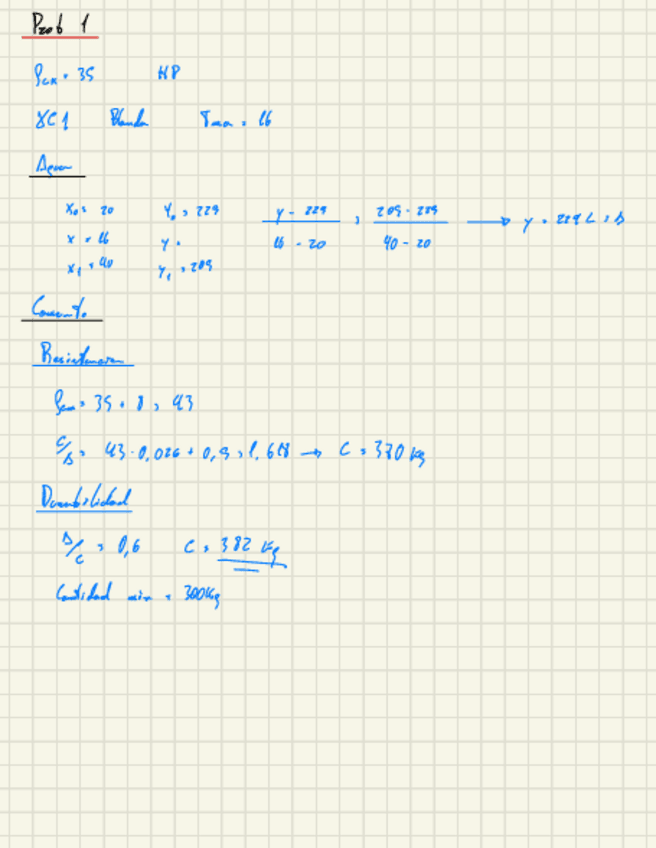 Prob 1
fck = 35 HP
XC1 Blanda Tmax = 16
Agua
x0 = 20 y0 = 225 y - 225 / 16 - 20 = 205 - 225 / 40 - 20 → y = 229 L = A
x = 16 y =
x1 = 40 y1 = 205
Cemento
Resistencia
fcm = 35 + 8 = 43
C/A = 43 · 0,026 + 0,5 = 1,618 → C = 370 kg
Durabilidad
A/C = 0,6 C = 382 kg
Cantidad min = 300kg